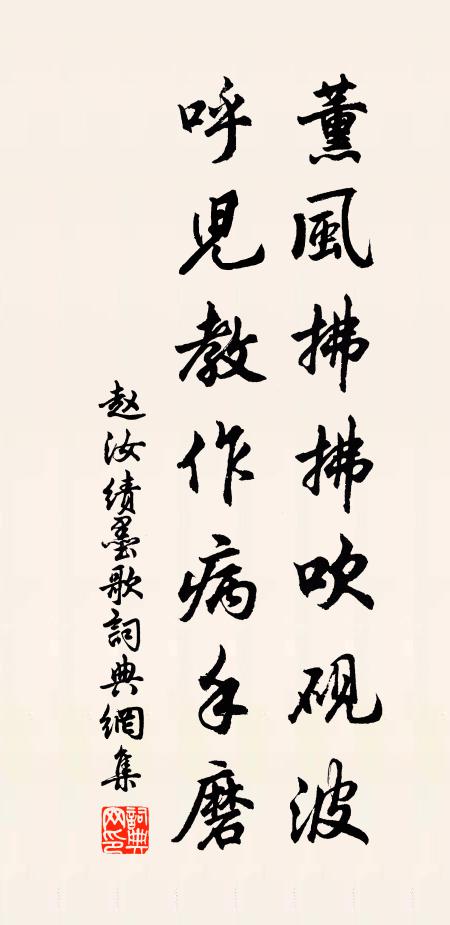 薰風拂拂吹硯波
呼児教作病手磨
赵汝績墨歌詞典網集
詞典网印